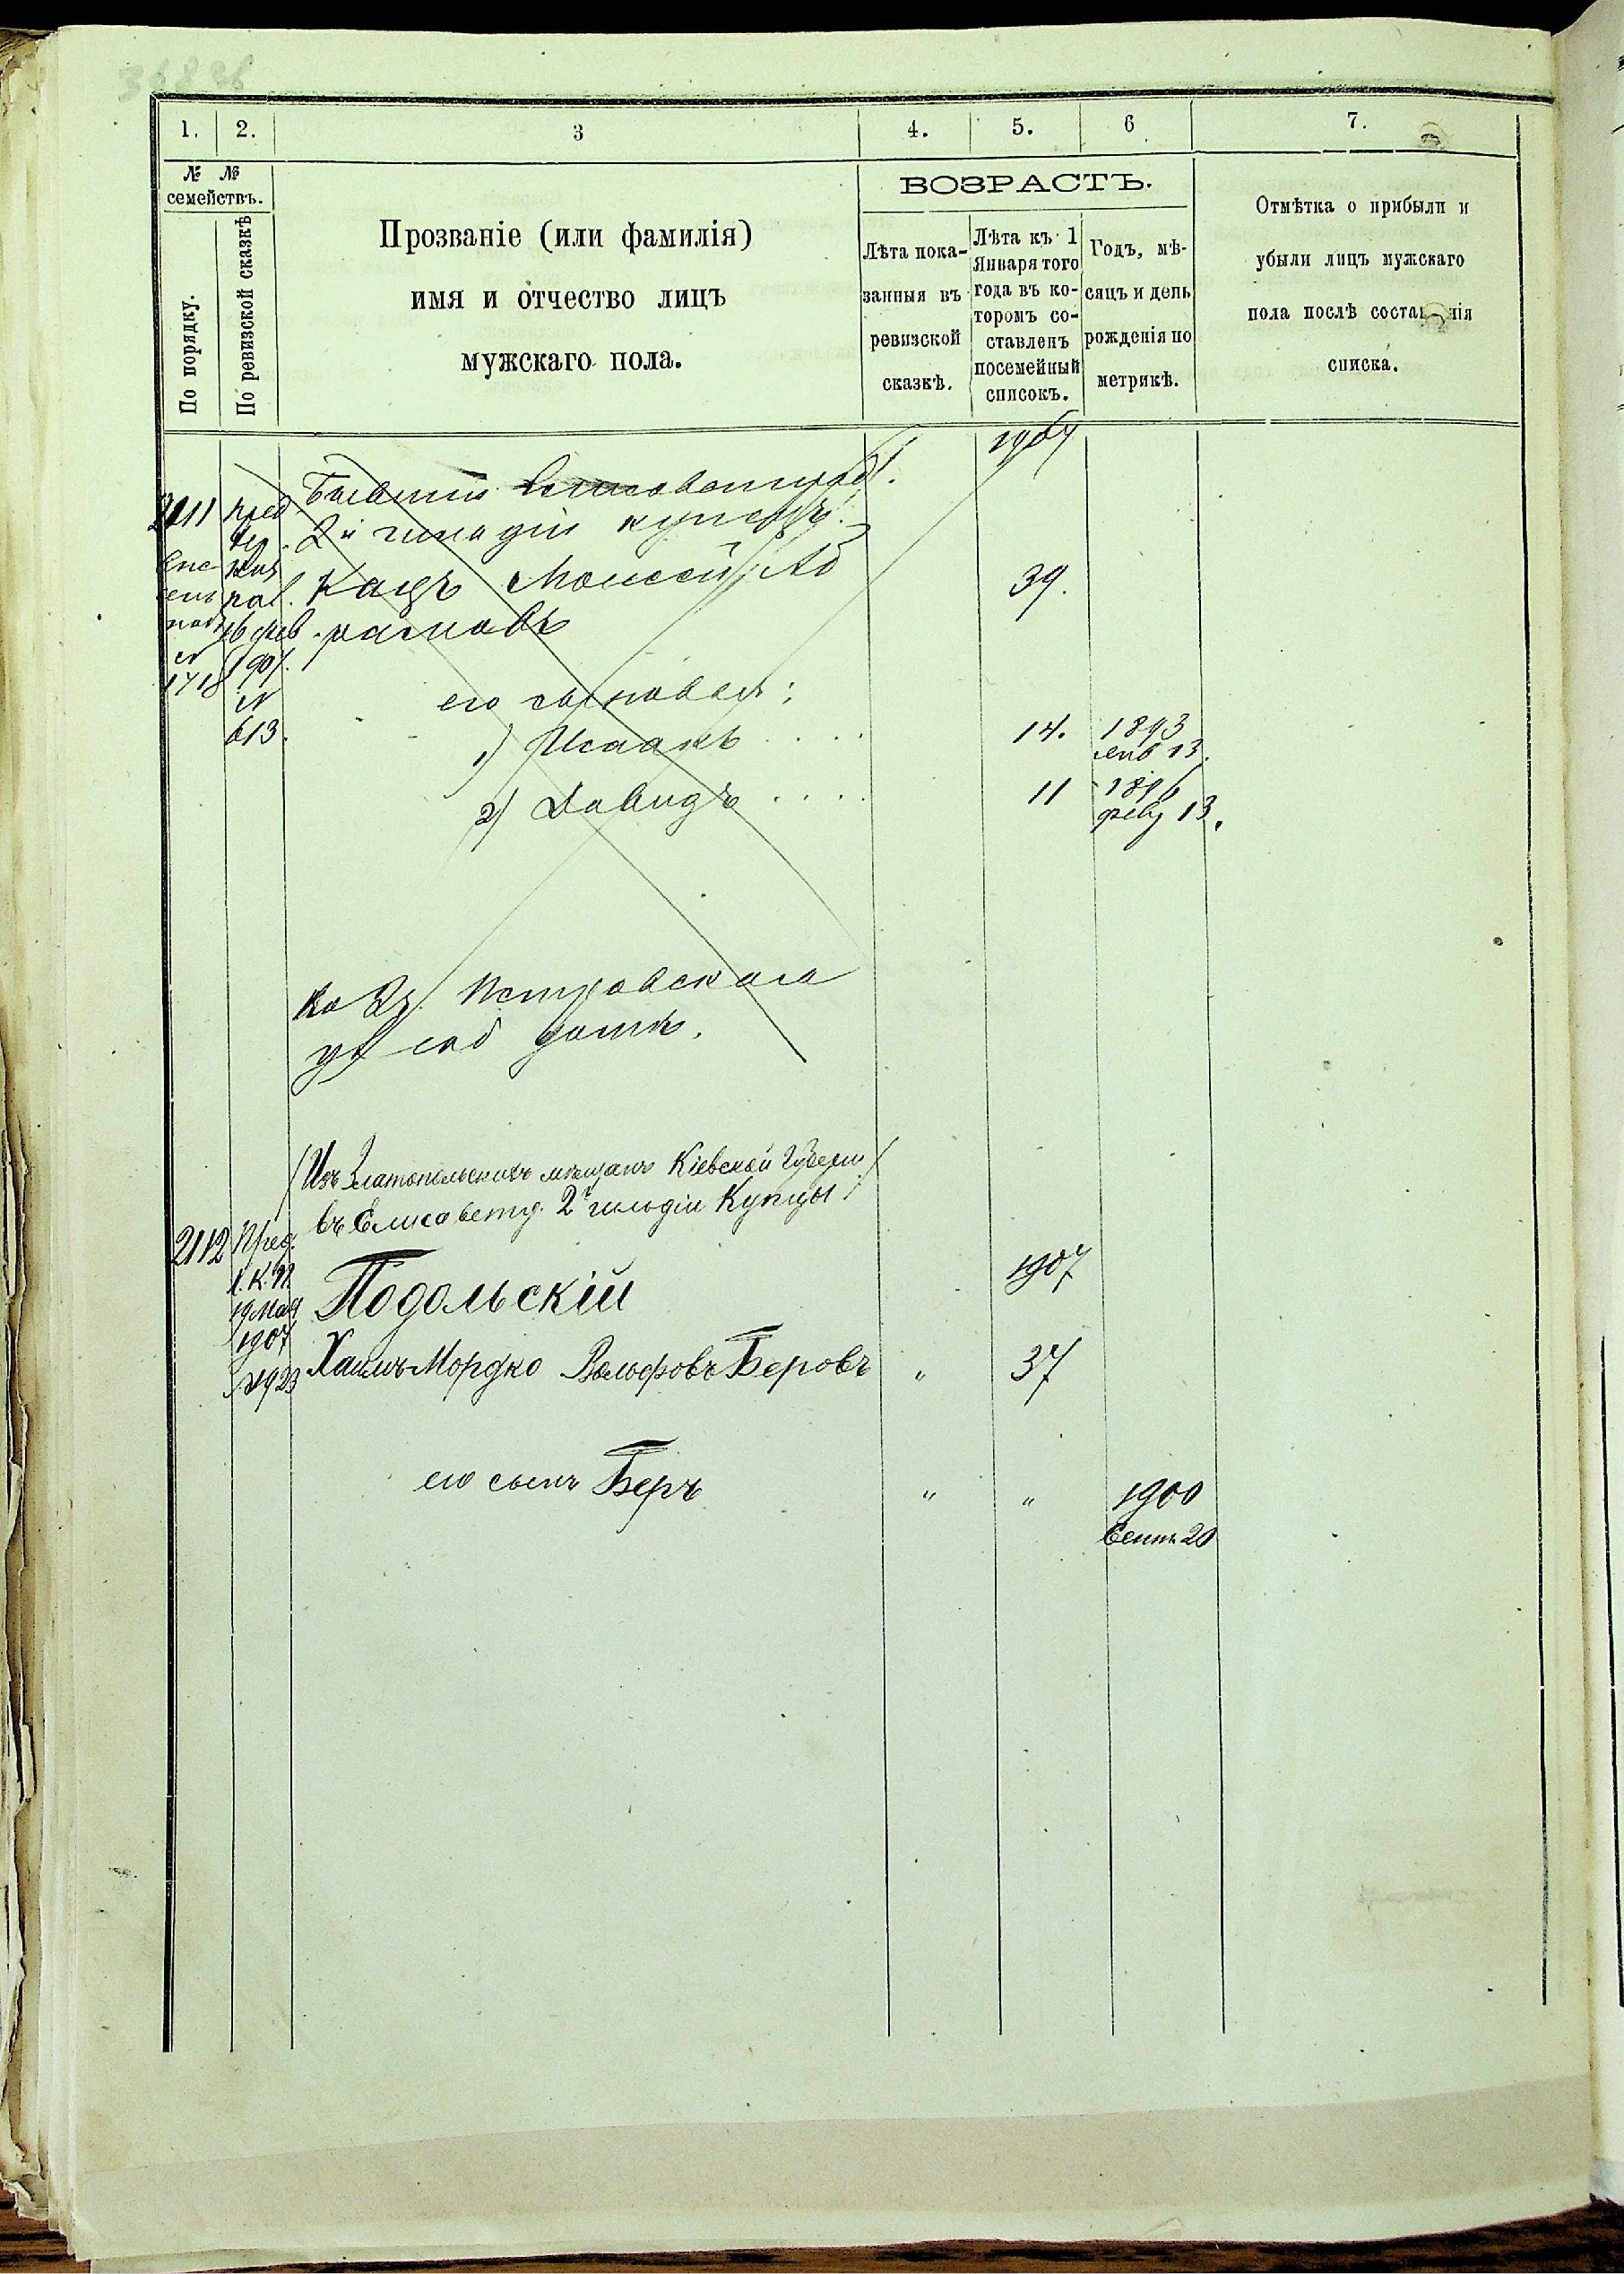 36836
1. 2. 3 4. 5. 6 7.
№ №
семействъ.
По порядку.
По ревизской сказкѣ
Прозваніе (или фамилія)
имя и отчество лицъ
мужскаго пола.
ВОЗРАСТЪ.
Лѣта пока-
занныя въ
ревизской
сказкѣ.
Лѣта къ 1
Января того
года въ ко-
торомъ со-
ставленъ
посемейный
списокъ.
Годъ, мѣ-
сяцъ и день
рожденія по
метрикѣ.
Отмѣтка о прибыли и
убыли лицъ мужскаго
пола послѣ составленія
списка.
1907
Бывшій Елисаветград.
2111 пред. 2й гильдіи купецъ
Хер.
Каз.
пал. Кацъ Моисей Аб 39.
16 фев. рамовъ
1907.
№
1718
№
613.
его сыновья:
1) Исаакъ . . . . 14. 1893
янв 13.
2) Давидъ . . . . 11 1896
фев 13.
Петровскаго
(Изъ Златопольскихъ мѣщанъ Кіевской Губерн)
въ Елисаветгр. 2й гильдіи Купцы
2112 Пред.
Х.К.П.
19 Мая
1907
№ 1923
Подольскій 1907
Хаимъ-Мордко Вольфовъ Беровъ " 37
его сынъ Беръ " " 1900
Сент. 20